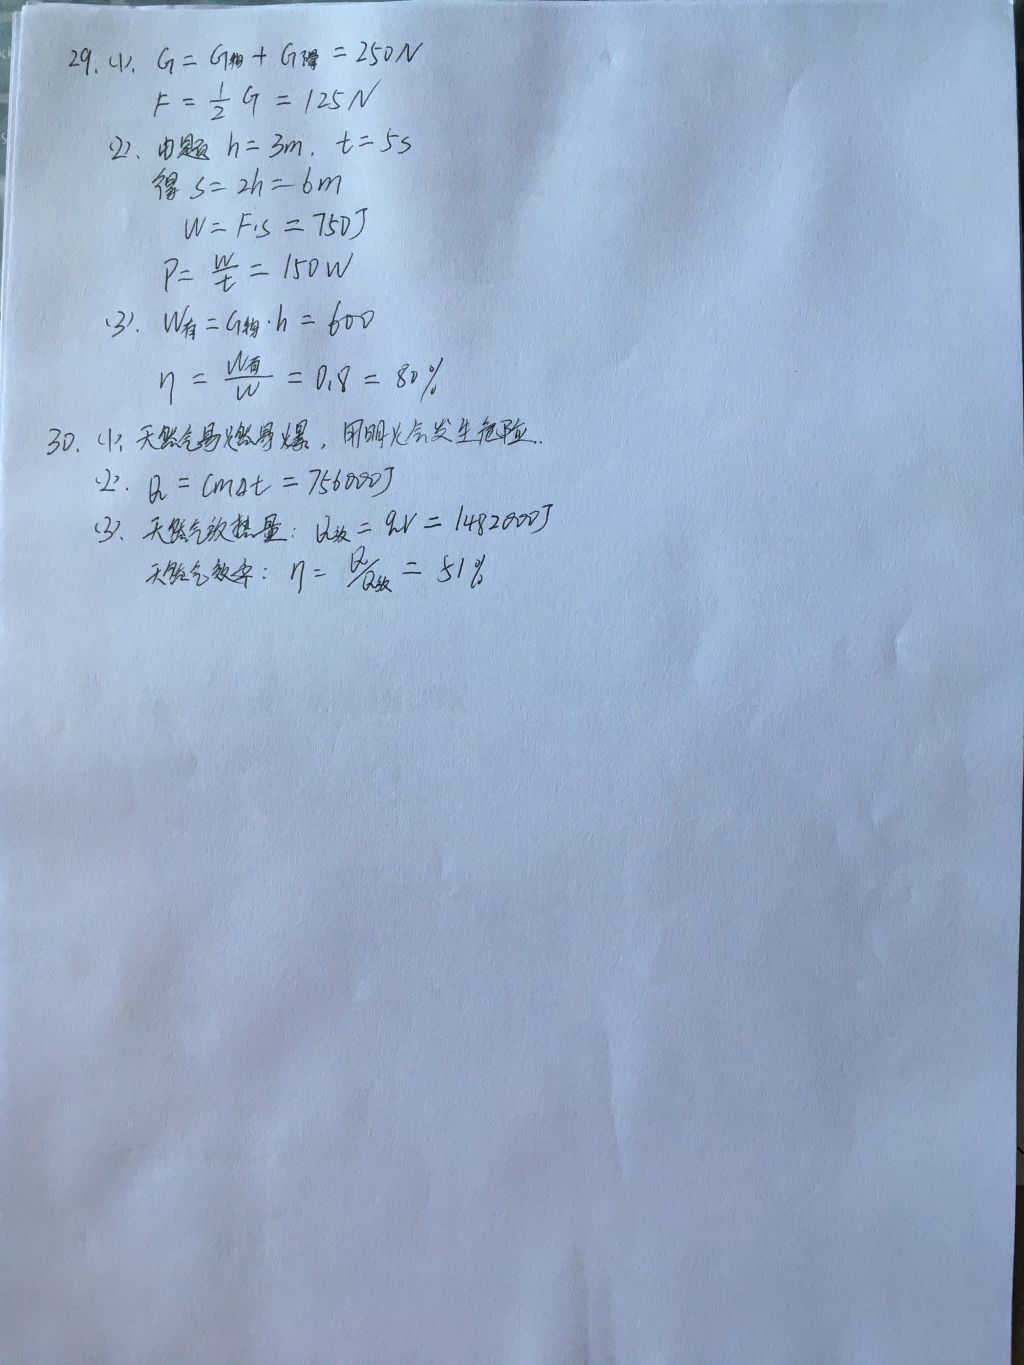 29. (1). G = G物 + G滑 = 250N
F = 1/2 G = 125N
(2). 由题 h = 3m. t = 5s
得 s = 2h = 6m
W = F·s = 750J
P = W/t = 150W
(3). W有 = G物·h = 600
η = W有/W = 0.8 = 80%
30. (1). 天然气易燃易爆, 用明火会发生危险.
(2). Q = cmΔt = 756000J
(3). 天然气放热量: Q放 = qV = 1482000J
天然气效率: η = Q/Q放 = 51%